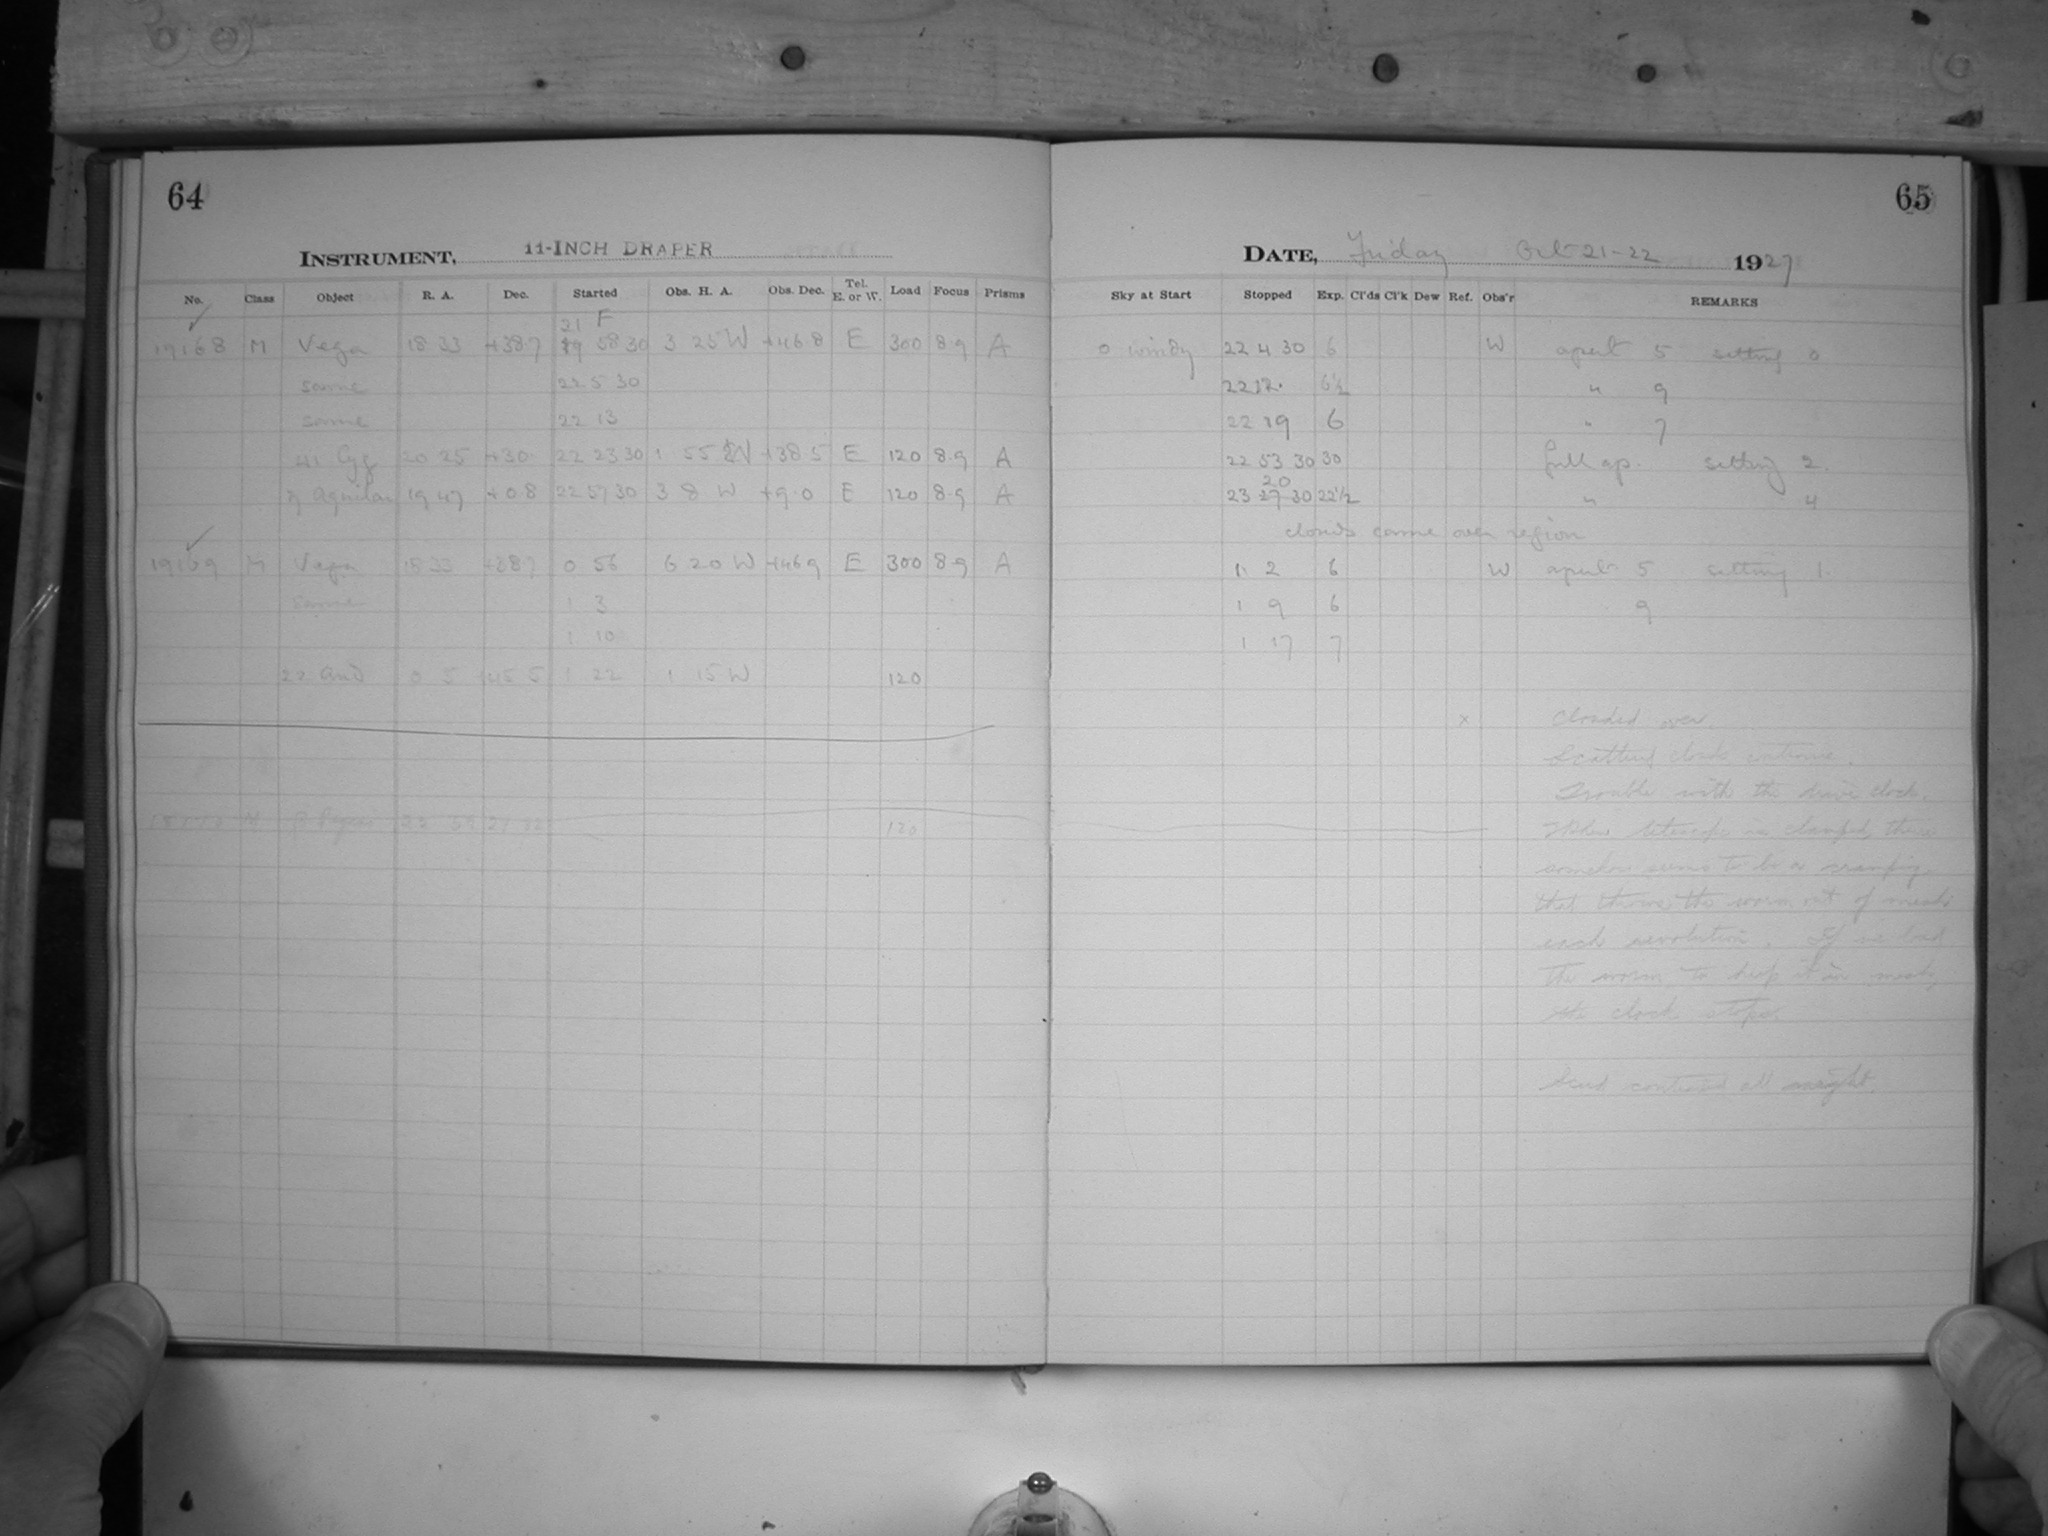 64
INSTRUMENT, 11-INCH DRAPER
No. Class Object R. A. Dec. Started Obs. H. A. Obs. Dec. Tel. E. or W. Load Focus Prisms
21 F
19168 M Vega 18 33 +38.7 19 58 30 3 25 W +46.8 E 300 8.9 A
same 22 5 30
same 22 13
41 Cyg 20 25 +30 22 23 30 1 55 W +38.5 E 120 8.9 A
η Aquilae 19 47 +0.8 22 57 30 3 8 W +9.0 E 120 8.9 A
19169 M Vega 18 33 +38.7 0 56 6 20 W +46.9 E 300 8.9 A
same 1 3
1 10
22 And 0 5 +45.5 1 22 1 15 W 120
M 120
65
DATE, Friday Oct 21-22 1927
Sky at Start Stopped Exp. Cl'ds Cl'k Dew Ref. Obs'r REMARKS
0 windy 22 4 30 6 W apert 5 setting 0
22 12. 6½ " 9
22 19 6 " 7
22 53 30 30 full ap. setting 2.
20
23 27 30 22½ " 4
clouds came over region
1 2 6 W apert 5 setting 1.
1 9 6 9
1 17 7
x Clouded over.
Trouble with the drive clock.
When telescope is clamped, there
somehow seems to be a
that throws the worm out of mesh
each revolution. If we
the worm to keep it in mesh,
the clock stops.
continued all night.